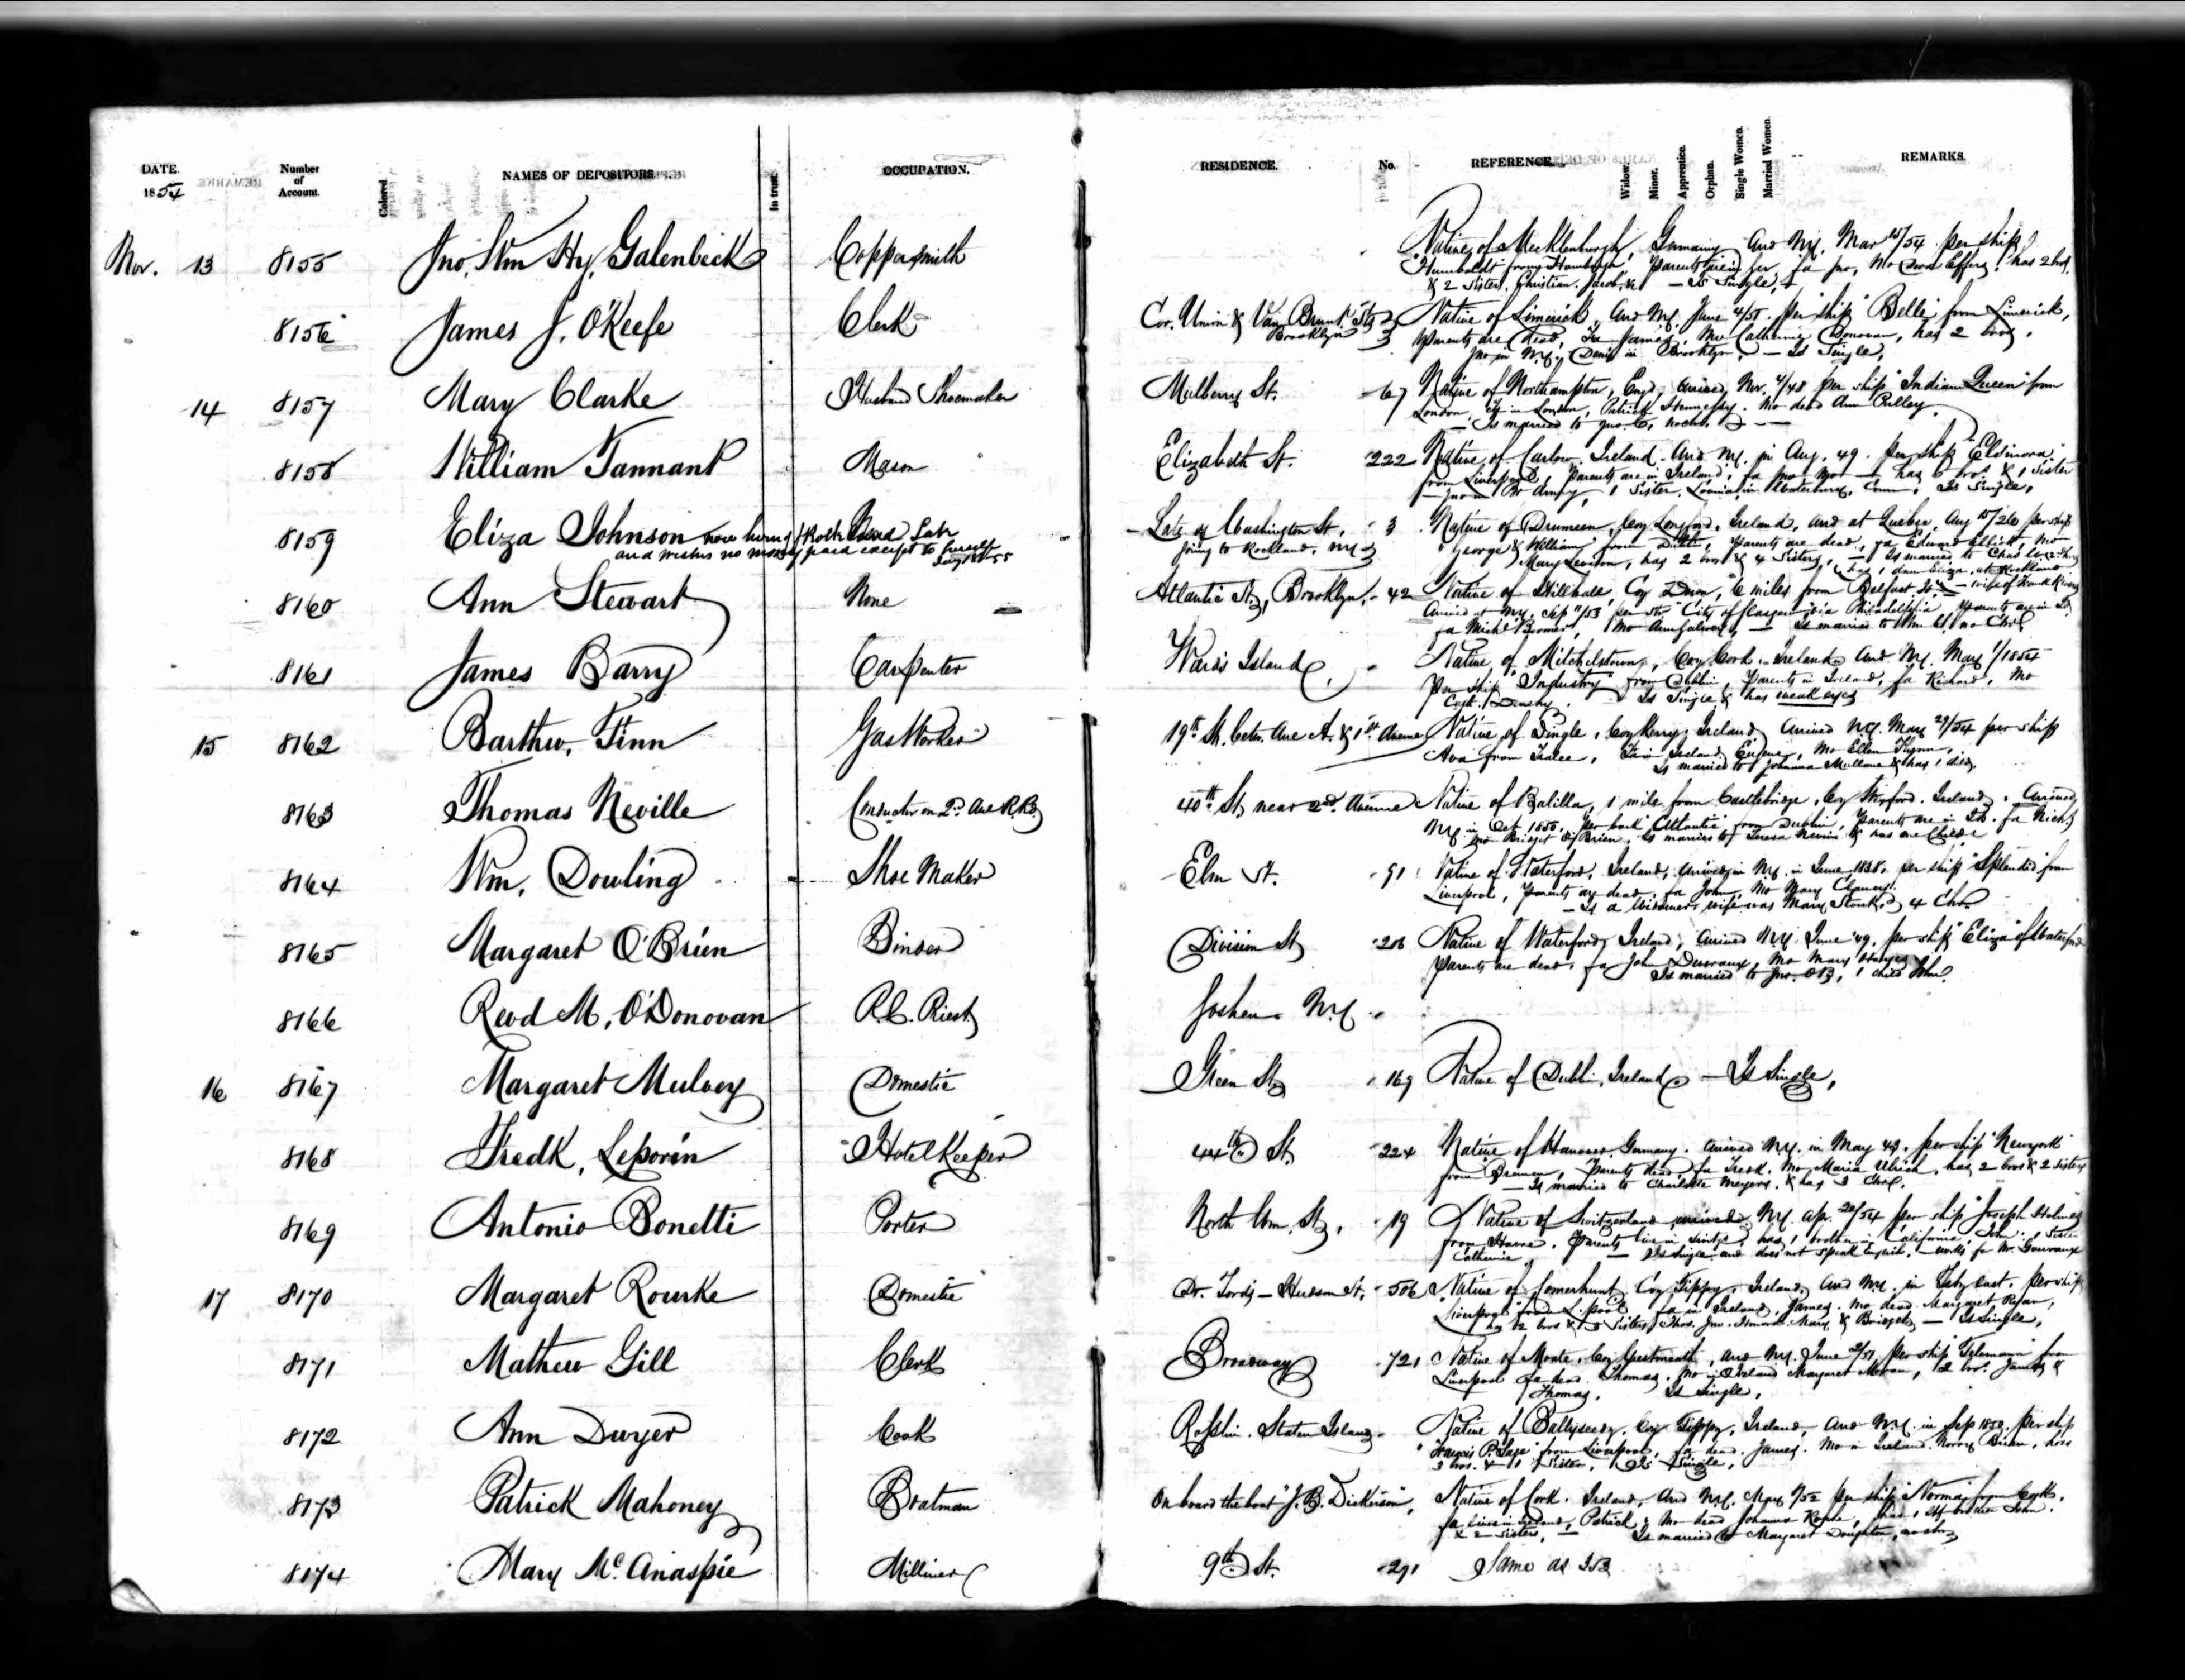 DATE. 1854 Number of Account. Colored. NAMES OF DEPOSITORS. In trust. OCCUPATION. RESIDENCE. No. REFERENCE. Widow. Minor. Apprentice. Orphan. Single Women. Married Women. REMARKS.
Nov. 13 8155 Jno. Wm Hy. Galenbeck Coppersmith Native of Mecklenburgh, Germany Arrd N.Y. Mar 15/54 per ship
"Humboldt" from Hamburgh, Parents in Ger, fa Jno, Mo has 2 bros.
& 2 Sisters, Christian, Jacob, & — Is Single,
8156 James J. O'Keefe Clerk Cor. Union & Van Brunt Sts Native of Limerick, Arrd N.Y. June 4/51. per ship "Belle" from Limerick,
Brooklyn Parents are dead, Fa James, Mo Catherine Donovan, has 2 bros,
Jno in N.Y., Denis in Brooklyn, — Is Single,
14 8157 Mary Clarke Husband Shoemaker Mulberry St. 67 Native of Northampton, Eng, arrived Nov. 4/48 per ship "Indian Queen" from
London, Fa in London, Patrick Hennessy. Mo dead Ann Culley.
— Is married to Jno. C, no chn.
8158 William Tannant Mason Elizabeth St. 222 Native of Carlow, Ireland. Arrd N.Y. in Aug. 49. per ship "Elsinora"
from Liverpool, Parents are in Ireland, fa Mo has bros & 1 Sister
Jno in Br Army, 1 Sister, Louisa, in Waterbury, Conn, Is Single,
8159 Eliza Johnson now living Rockland Late of Washington St. 3 Native of Drumeen, Coy Longford, Ireland, arrd at Quebec, Aug 15/26 per ship
and wishes no money paid except to herself going to Rockland, N.Y. "George & William" from Parents are dead, fa Edward Elliott, Mo
Mary has 2 bros & 4 Sisters, — Is married to Chas
has 1 dau Eliza, at Rockland
8160 Ann Stewart None Atlantic St, Brooklyn, 42 Native of Hillhall, Coy Down, 6 miles from Belfast
Arrived at N.Y. Sep 11/53 per str "City of Glasgow" via Philadelphia, Parents are in
fa Michl Mo Ann — Is married to Wm S, no Chn
8161 James Barry Carpenter Wards Island, Native of Mitchelstown, Coy Cork, Ireland Arrd N.Y. May 1/1854
per ship "Industry" from Dublin, Parents in Ireland, fa Richard, Mo
Cath. Is Single & has weak eyes
15 8162 Barthw. Finn Gas Worker 19th St. betw. Ave A. & 1st Avenue Native of Dingle, Coy Kerry, Ireland Arrived N.Y. May 29/54 per ship
Ava from Tralee, Fa in Ireland Eugene, Mo Ellen Flynn,
Is married to Johanna Mullane & has 1 child,
8163 Thomas Neville Conductor on 2nd Ave R.R. 40th St, near 2nd Avenue Native of Balilla, 1 mile from Castlebridge, Coy Wexford, Ireland, Arrived
N.Y. in Oct 1850, per bark "Atlantic" from Dublin, Parents are in Ird. fa Nichs
Mo Bridget O'Brien, Is married to Teresa & has one Child
8164 Wm, Dowling Shoe Maker Elm St. 91 Native of Waterford, Ireland, arrived in N.Y. in June 1838, per ship "Splendid" from
Liverpool, Parents are dead, fa John, Mo Mary Clancey
— Is a Widower, wife was Mary 4 Chn
8165 Margaret O'Brien Binder Division St 206 Native of Waterford, Ireland, arrived N.Y. June '49, per ship "Eliza" of Waterford
Parents are dead, fa John Devraux, Mo Mary
Is married to Jno. O'B, 1 child John
8166 Revd M, O'Donovan R.C. Priest Goshen N.Y.
16 8167 Margaret Mulvey Domestic Green St 169 Native of Dublin, Ireland — Is Single,
8168 Fredk, Leporin Hotel Keeper 44th St 224 Native of Hanover, Germany. arrived N.Y. in May 43, per ship "Newyork"
from Bremen, Parents dead, fa Fredk. Mo Maria Ulrich, has 2 bros & 2 sisters
— Is married to Charlotte Meyers, & has 3 Chn,
8169 Antonio Bonetti Porter North Wm. St, 19 Native of Switzerland, arrived N.Y. Apr. 20/54 per ship "Joseph Holmes"
from Havre, Parents live in has 1 brother in California, John, 1 sister
Catherine — Is Single and does not speak English, — works for Mr.
17 8170 Margaret Rourke Domestic Dr. Fords — Hudson St, 506 Native of Coy Tippy, Ireland, arrd N.Y. in Feby last, per ship
"Liverpool" from L.pool fa in Ireland, James. Mo dead Margaret Ryan,
has bros & Sisters, Thos. Jno. Mary & Bridget, — Is Single,
8171 Mathew Gill Clerk Broadway 721 Native of Moate, Coy Westmeath, arrd N.Y. June per ship from
Liverpool fa dead Thomas, Mo in Ireland Margaret 2 bros. James &
Thomas, Is Single,
8172 Ann Dwyer Cook Rosslin. Staten Island. Native of Coy Tippy, Ireland, Arrd N.Y. in Sep 1850, per ship
"Francis P. Sage" from Liverpool, fa dead. James. Mo in Ireland. Brien, has
3 bros. & 1 Sister, Is Single,
8173 Patrick Mahoney Boatman On board the boat "J. B. Dickerson", Native of Cork, Ireland, Arrd N.Y. May 9/52 per ship "Norma" from Cork,
fa lives in Ireland, Patrick, Mo dead Johanna has 1 brother John.
& 2 Sisters, — Is married to Margaret no chn
8174 Mary Mc.Anaspie Milliner 9th St. 291 Same as 353